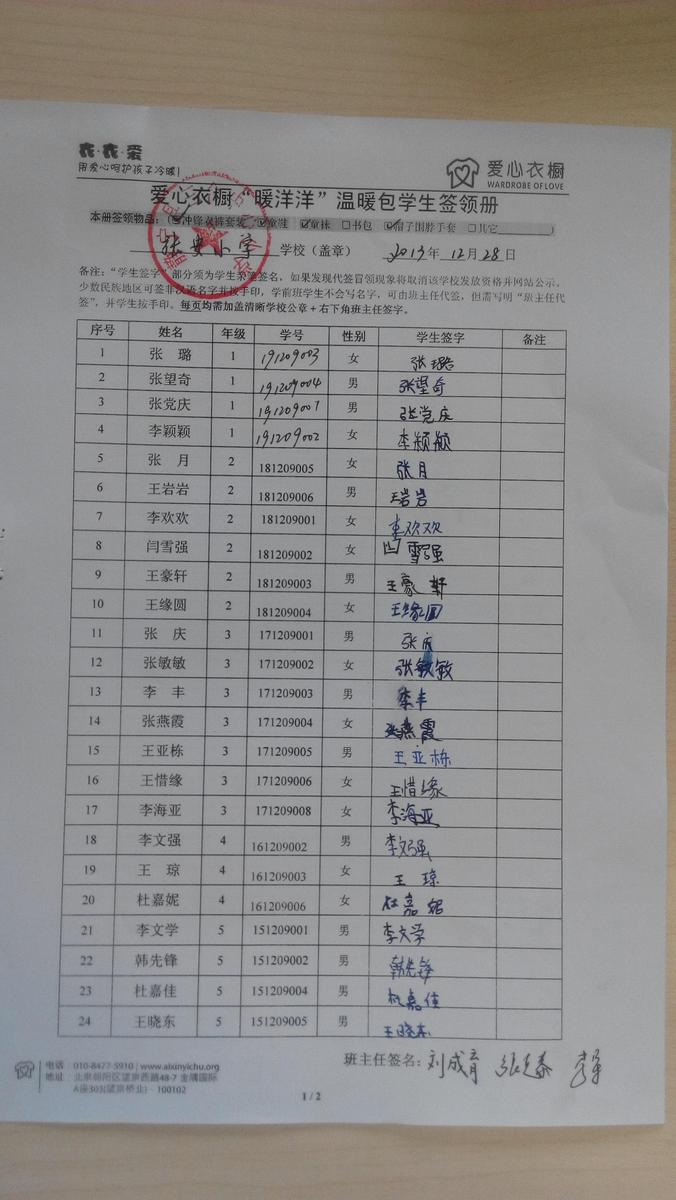 衣·衣·爱
用爱心呵护孩子冷暖!
爱心衣橱
WARDROBE OF LOVE
爱心衣橱“暖洋洋”温暖包学生签领册
本册签领物品:(☑冲锋衣裤套装 ☑童鞋 ☑童袜 □书包 ☑帽子围脖手套 □其它________)
张安小学 学校(盖章) 2013年12月28日
备注:“学生签字”部分须为学生亲笔签名,如果发现代签冒领现象将取消该学校发放资格并网站公示。
少数民族地区可签非汉语名字并按手印,学前班学生不会写名字,可由班主任代签,但需写明“班主任代
签”,并学生按手印。每页均需加盖清晰学校公章+右下角班主任签字。
序号 姓名 年级 学号 性别 学生签字 备注
1 张 璐 1 191209003 女 张璐
2 张望奇 1 191209004 男 张望奇
3 张党庆 1 191209001 男 张党庆
4 李颖颖 1 191209002 女 李颖颖
5 张 月 2 181209005 女 张月
6 王岩岩 2 181209006 男 王岩岩
7 李欢欢 2 181209001 女 李欢欢
8 闫雪强 2 181209002 女 雪强
9 王豪轩 2 181209003 男 王豪轩
10 王缘圆 2 181209004 女 王缘圆
11 张 庆 3 171209001 男 张庆
12 张敏敏 3 171209002 女 张敏敏
13 李 丰 3 171209003 男 李丰
14 张燕霞 3 171209004 女 张燕霞
15 王亚栋 3 171209005 男 王亚栋
16 王惜缘 3 171209006 女 王惜缘
17 李海亚 3 171209008 女 李海亚
18 李文强 4 161209002 男 李文强
19 王 琼 4 161209003 女 王 琼
20 杜嘉妮 4 161209006 女 杜嘉妮
21 李文学 5 151209001 男 李文学
22 韩先锋 5 151209002 男 韩先锋
23 杜嘉佳 5 151209004 男 杜嘉佳
24 王晓东 5 151209005 男 王晓东
班主任签名:刘成育
电话 010-8477-5910 | www.aixinyichu.org
地址 北京朝阳区望京西路48-7 金隅国际
A座303(望京桥业) - 100102
1 / 2